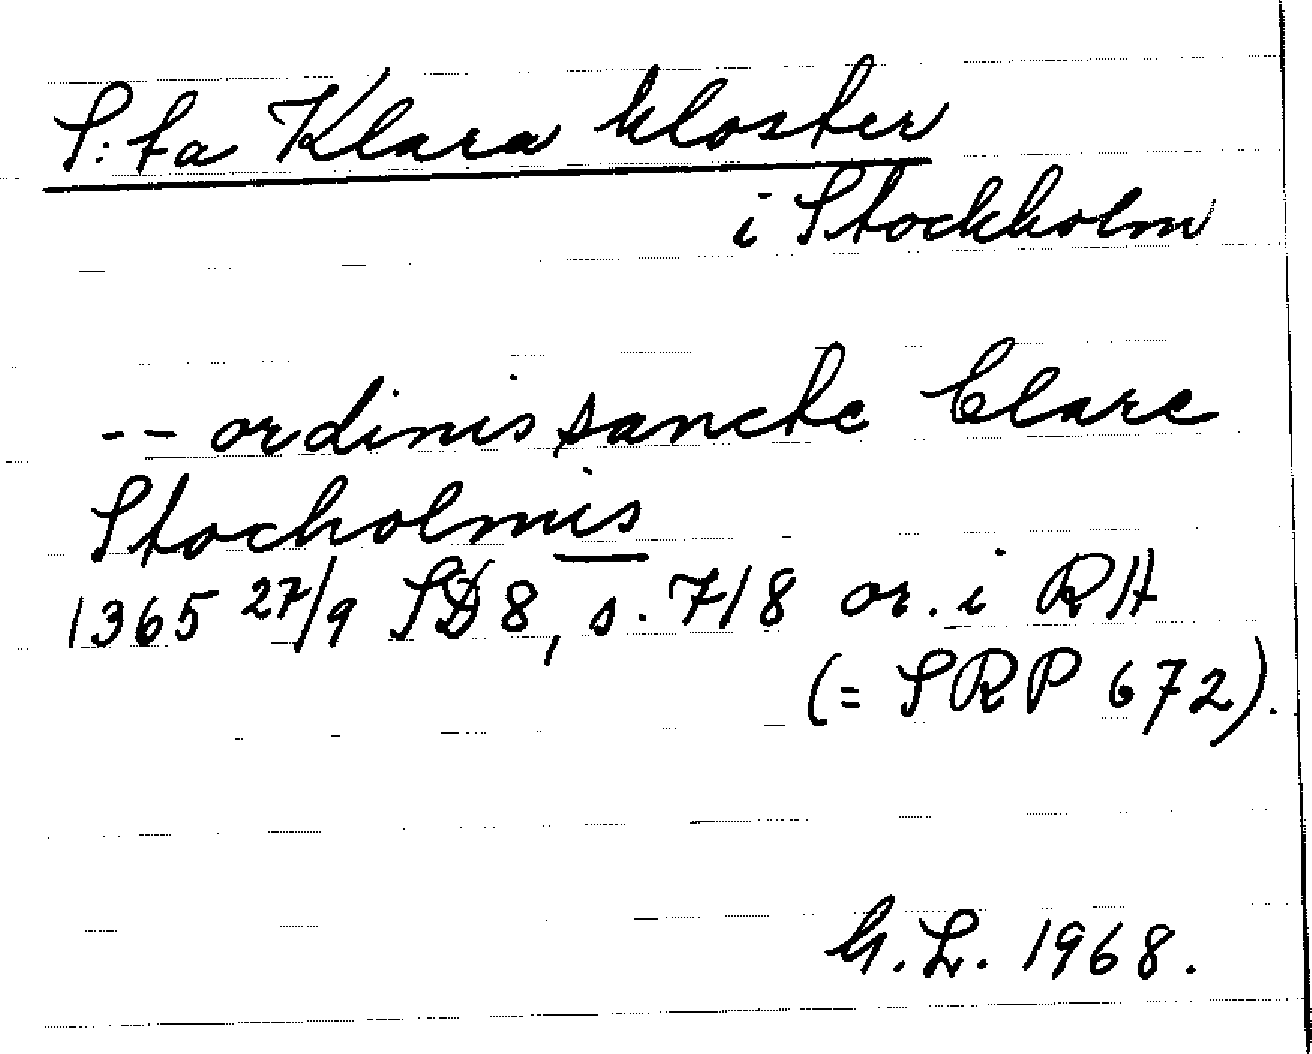 S:ta Klara kloster
i Stockholm
-- ordinis sancte Clare
Stocholmis
1365 27/9 SD 8, s. 718 or. i RA
(= SRP 672).
G.L. 1968.